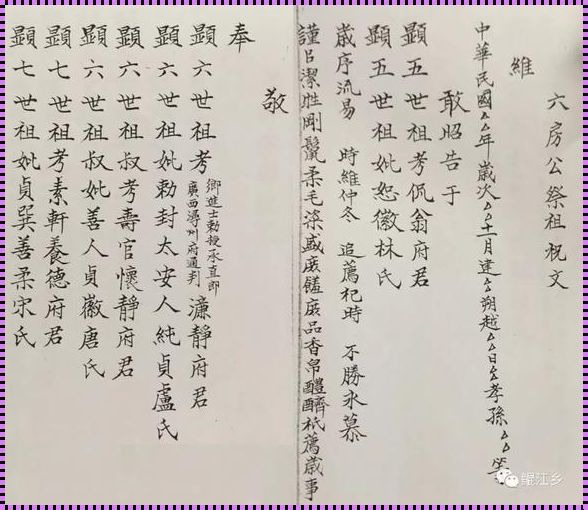 六房公祭祖祝文
維
中華民國△△年歲次△△十一月建△△朔越△△日△△孝孫△△等
敢昭告于
顯五世祖考侃翁府君
顯五世祖妣恕徽林氏
歲序流易 時維仲冬 追薦祀時 不勝永慕
謹㠯潔牲剛鬣柔毛粢盛庶饈庶品香帛醴齊祇薦歲事
敬
奉
顯六世祖考鄉進士勅授承直郎廣西潯州府通判濂靜府君
顯六世祖妣勅封太安人純貞盧氏
顯六世祖叔考壽官懷靜府君
顯六世祖叔妣善人貞徽唐氏
顯七世祖考素軒養德府君
顯七世祖妣貞巽善柔宋氏
鲲江乡